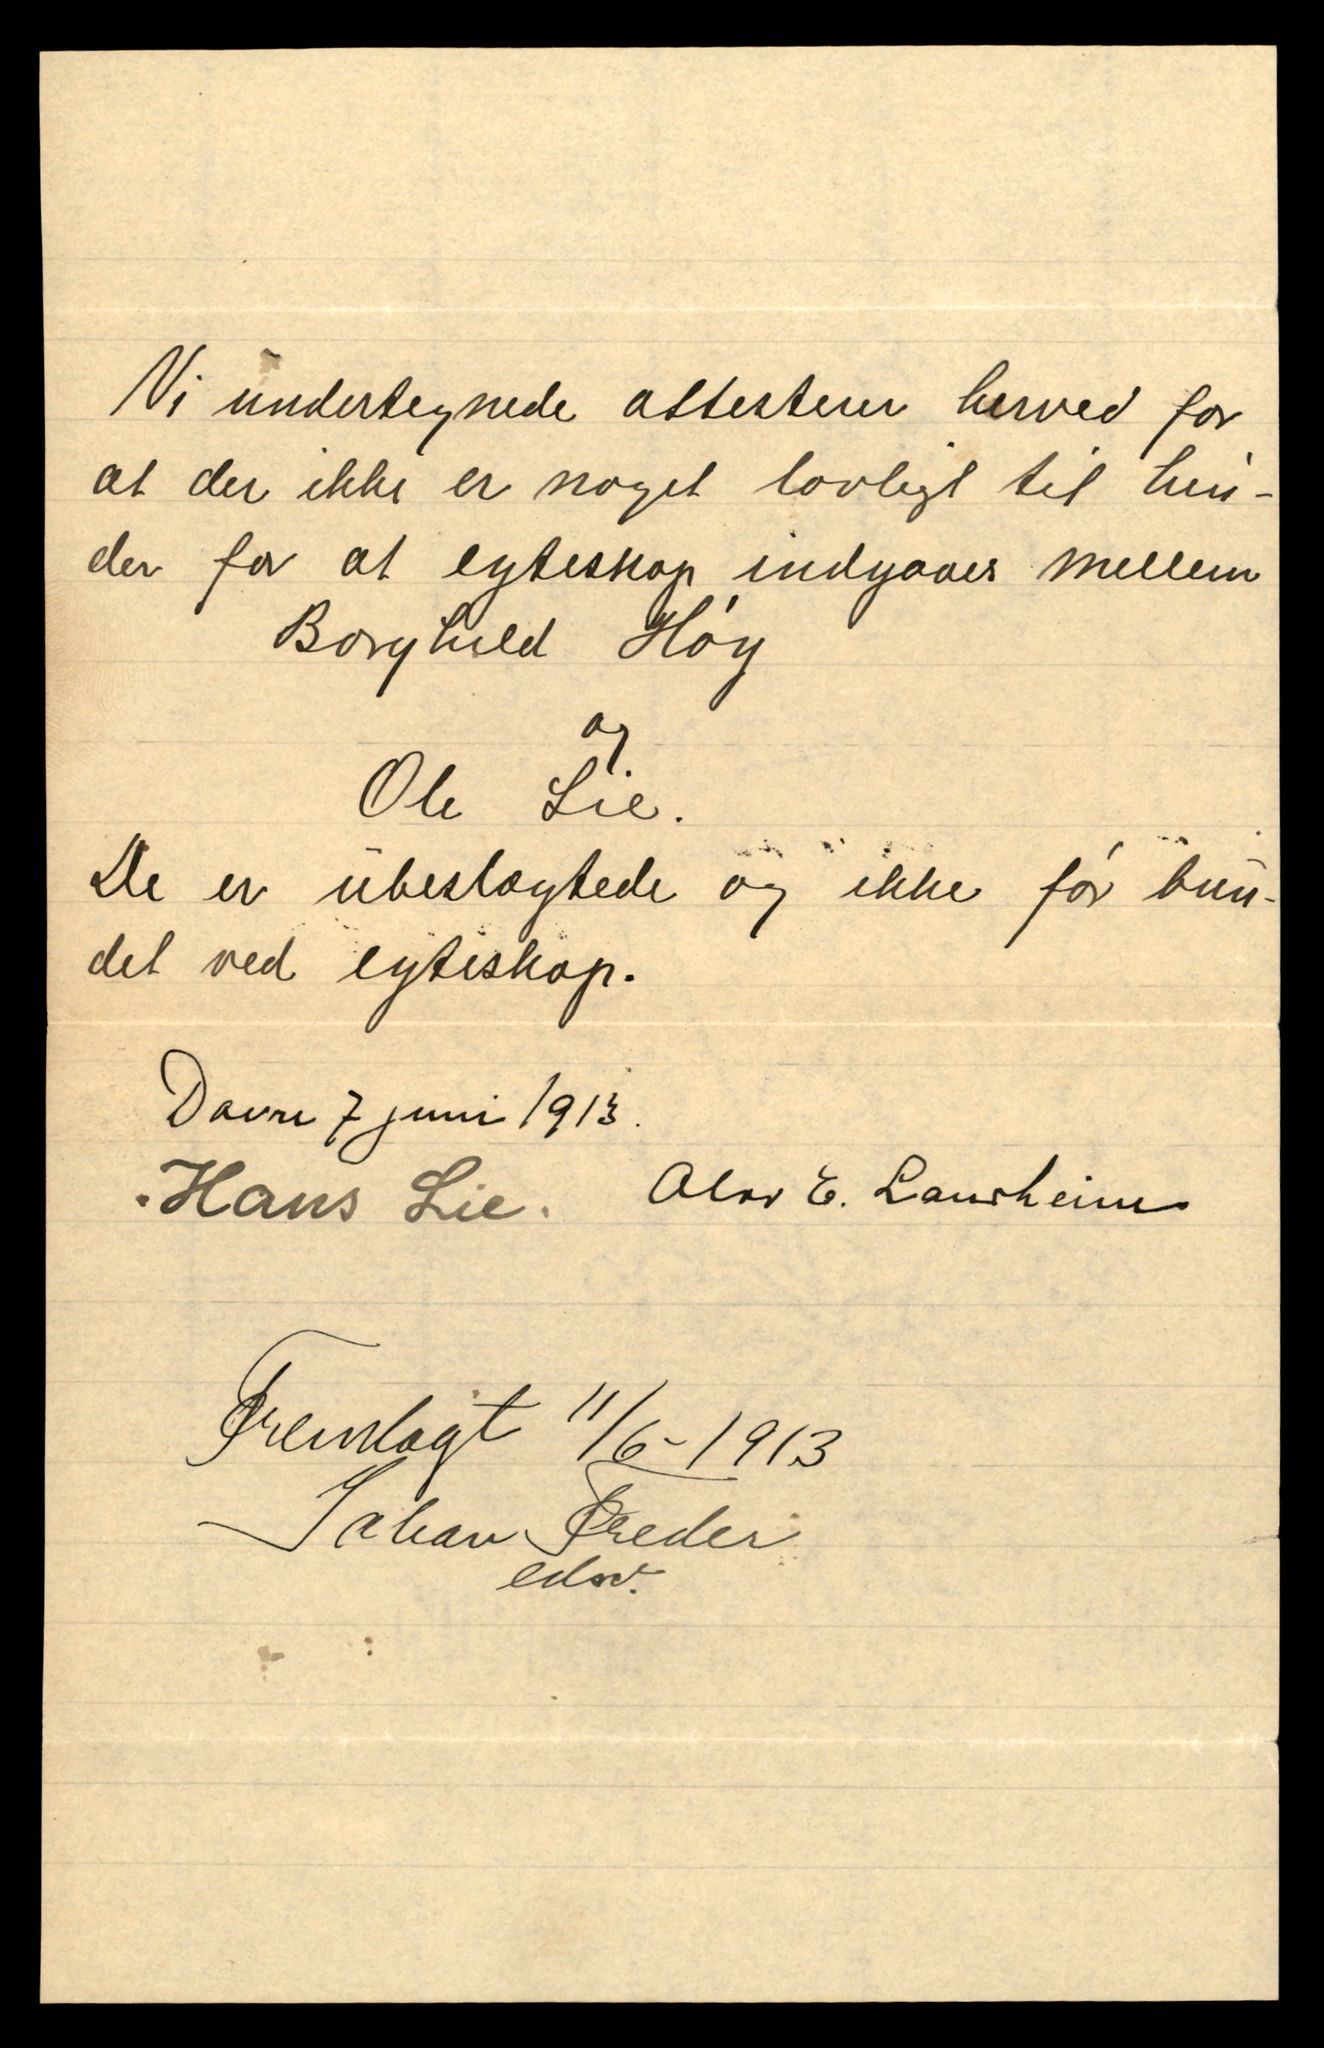 Vi undertegnede attesterer herved for
at der ikke er noget lovligt til hin-
der for at egteskap indgaaes mellem
Borghild Høy
og
Ole Lie.
De er ubeslagtede og ikke før bun-
det ved egteskap.
Dovre 7 juni 1913.
Hans Lie. Olav E. Lansheim
Fremlagt 11/6-1913
Johan